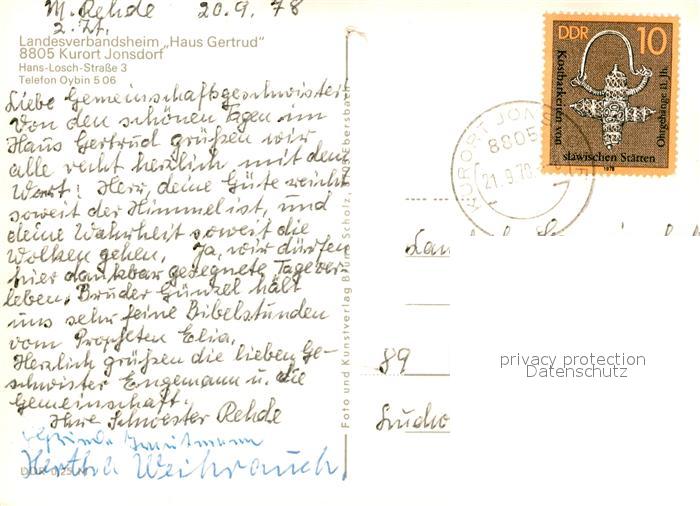 M. Rehde 20.9.78
z. Zt.
Landesverbandsheim „Haus Gertrud"
8805 Kurort Jonsdorf
Hans-Losch-Straße 3
Telefon Oybin 5 06
Liebe Gemeinschaftsgeschwister
Von den schönen Tagen im
Haus Gertrud grüßen wir
alle recht herzlich mit dem
Wort: Herr, deine Güte reicht
soweit der Himmel ist, und
deine Wahrheit soweit die
Wolken gehen. Ja, wir dürfen
hier dankbar gesegnete Tage ver
leben. Bruder Günzel hält
uns sehr feine Bibelstunden
vom Propheten Elia.
Herzlich grüßen die lieben Ge-
schwister Engemann u. die
Gemeinschaft.
Ihre Schwester Rehde
Hertha Weihrauch
Foto und Kunstverlag Bruno Scholz, Ebersbach
DDR 10
Kostbarkeiten von
slawischen Stätten
Ohrgehänge 11. Jh.
1978
KURORT JON
8805
21.9.78
89
privacy protection
Datenschutz